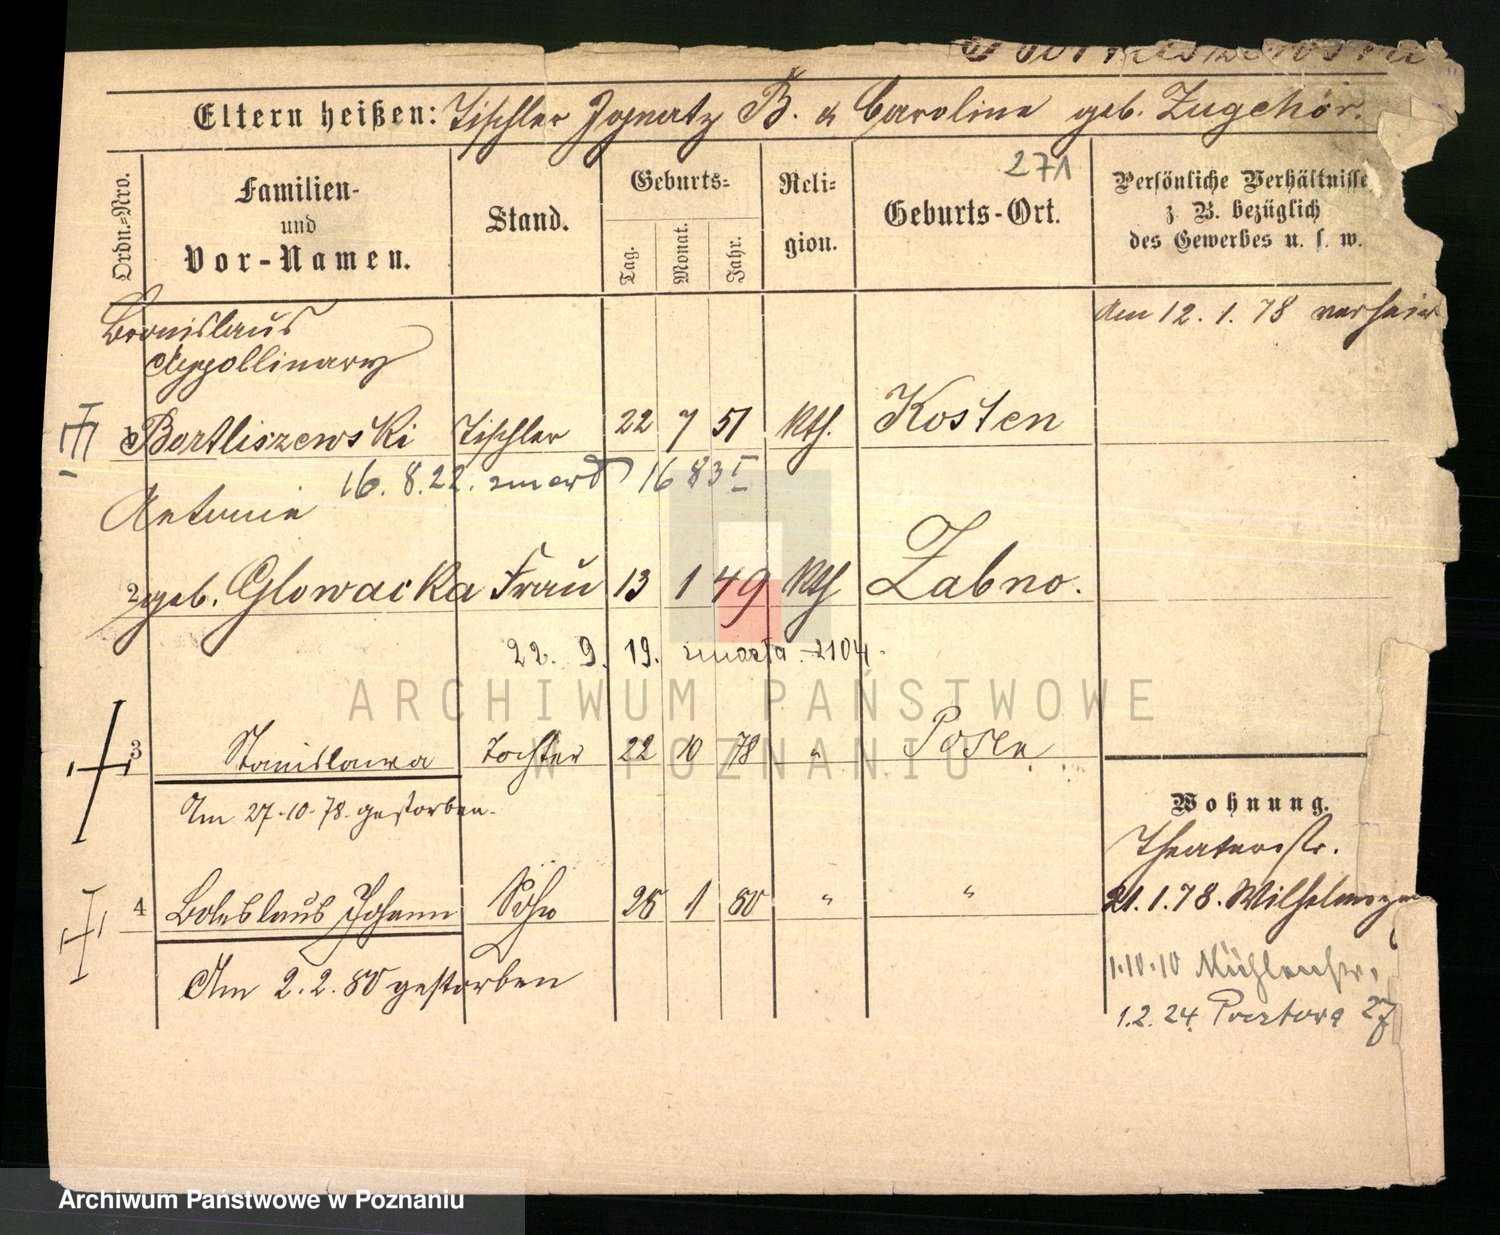 Eltern heißen: Tischler Ignatz B. & Caroline geb. Zugehör.
271
Ordn.-Nro.
Familien-
und
Vor-Namen.
Stand.
Geburts-
Tag.
Monat.
Jahr.
Reli-
gion.
Geburts-Ort.
Persönliche Verhältnisse
z. B. bezüglich
des Gewerbes u. s. w.
Bronislaus
Appollinary
Am 12. 1. 78 verheir
Bortliszewski Tischler 22 7 51 kth. Kosten
16. 8. 22. zmarł 1683 I
Antonie
2 geb. Glowacka Frau 13 1 49 kth Zabno.
22. 9. 19. zmarła 2104
3 Stanislawa Tochter 22 10 78 " Posen
Am 27.10.78. gestorben.
4 Boleslaus Johann Sohn 25 1 80 " "
Am 2. 2. 80 gestorben
Wohnung.
Theaterstr.
21. 1. 78. Wilhelms
1.10.10 Mühlenstr.
1. 2. 24. Pocztowa 27
ARCHIWUM PAŃSTWOWE
W POZNANIU
Archiwum Państwowe w Poznaniu